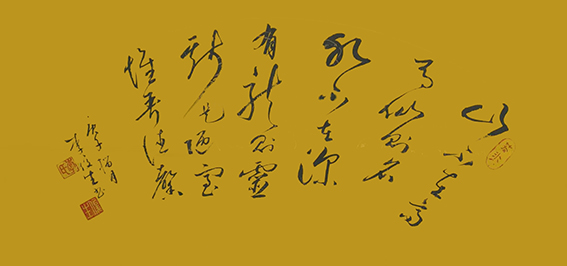 山不在高
有仙则名
水不在深
有龙则靈
斯是陋室
惟吾德馨
庚子月
李书